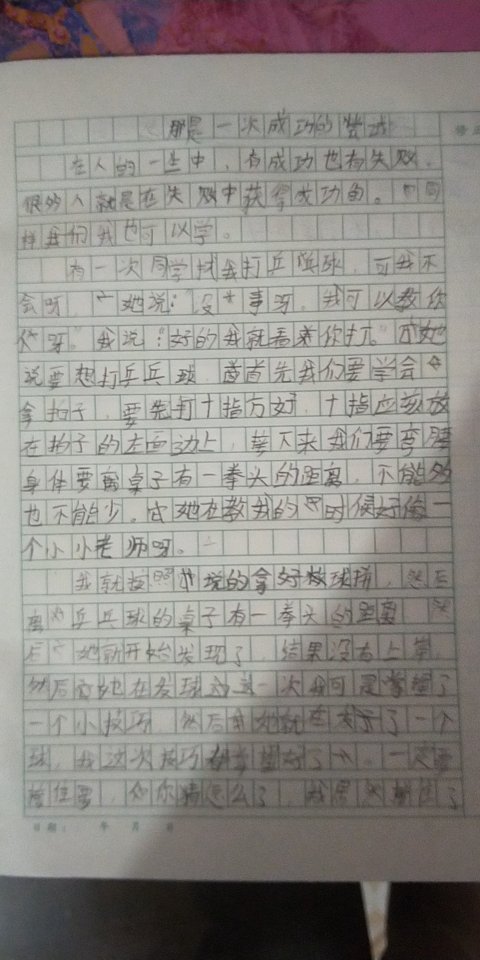 那是一次成功的尝试
在人的一生中，有成功也有失败，
很多人就是在失败中获得成功的。同
样我们我也可以学。
有一次同学找我打乒乓球，可我不
会呀，她说：“没事呀，我可以教你
呀。”我说：“好的我就看着你打。”她
说要想打乒乓球，首先我们要学会
拿拍子，要先打十指方好，十指应该放
在拍子的左面边上，接下来我们要弯腰
身体要离桌子有一拳头的距离，不能多
也不能少。她在教我的时候好像一
个小小老师呀。
我就按照她说的拿好球拍，然后
离乒乓球的桌子有一拳头的距离
后她就开始发现了 结果没有上桌，
然后她在发球这一次我可是掌握了
一个小技巧，然后她就在发了一个
球，我这次技巧都掌握好了。一定要
接住要，你猜怎么了，我果然接住了
日期： 年 月 日